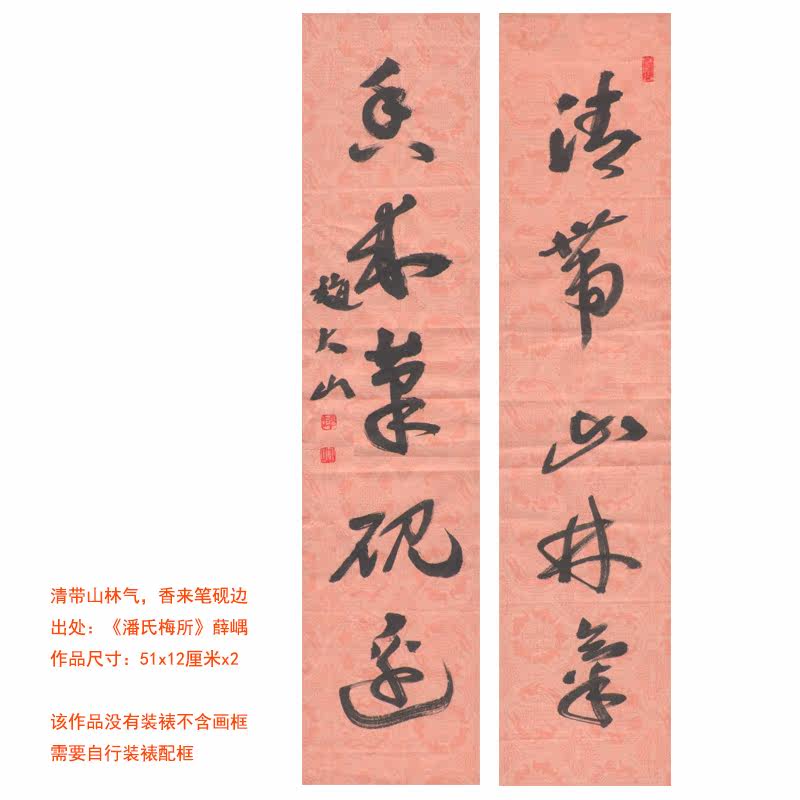 清帶山林氣
香來筆硯邊
趙大山
清带山林气，香来笔砚边
出处：《潘氏梅所》薛嵎
作品尺寸：51x12厘米x2
该作品没有装裱不含画框
需要自行装裱配框